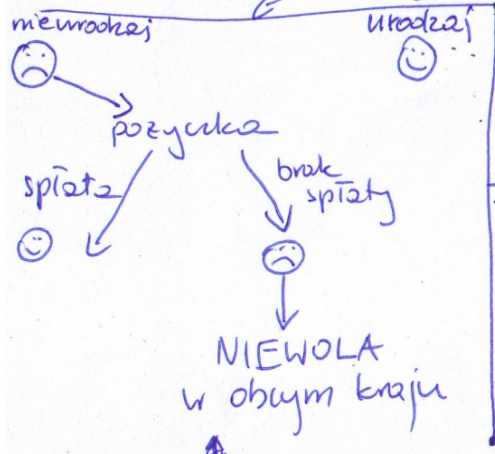 nieurodzaj urodzaj
pożyczka
spłata
brak
spłaty
NIEWOLA
w obcym kraju